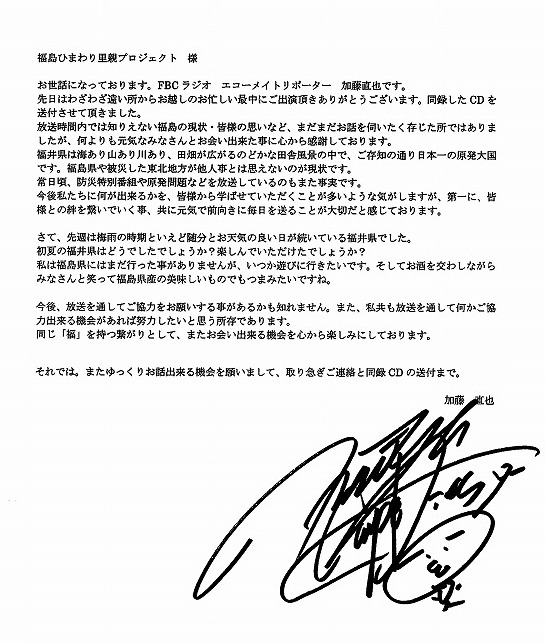 福島ひまわり里親プロジェクト　様
お世話になっております。FBCラジオ　エコーメイトリポーター　加藤直也です。
先日はわざわざ遠い所からお越しのお忙しい最中にご出演頂きありがとうございます。同録したCDを
送付させて頂きました。
放送時間内では知りえない福島の現状・皆様の思いなど、まだまだお話を伺いたく存じた所ではありま
したが、何よりも元気なみなさんとお会い出来た事に心から感謝しております。
福井県は海あり山あり川あり、田畑が広がるのどかな田舎風景の中で、ご存知の通り日本一の原発大国
です。福島県や被災した東北地方が他人事とは思えないのが現状です。
常日頃、防災特別番組や原発問題などを放送しているのもまた事実です。
今後私たちに何が出来るかを、皆様から学ばせていただくことが多いような気がしますが、第一に、皆
様との絆を繋いでいく事、共に元気で前向きに毎日を送ることが大切だと感じております。
さて、先週は梅雨の時期といえど随分とお天気の良い日が続いている福井県でした。
初夏の福井県はどうでしたでしょうか？楽しんでいただけたでしょうか？
私は福島県にはまだ行った事がありませんが、いつか遊びに行きたいです。そしてお酒を交わしながら
みなさんと笑って福島県産の美味しいものでもつまみたいですね。
今後、放送を通してご協力をお願いする事があるかも知れません。また、私共も放送を通して何かご協
力出来る機会があれば努力したいと思う所存であります。
同じ「福」を持つ繋がりとして、またお会い出来る機会を心から楽しみにしております。
それでは。またゆっくりお話出来る機会を願いまして、取り急ぎご連絡と同録CDの送付まで。
加藤　直也